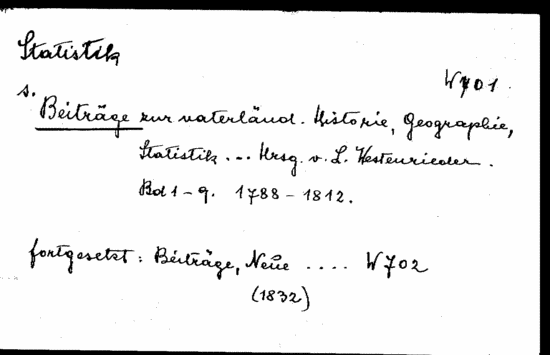 Statistik
W 701.
s. Beiträge zur vaterländ. Historie, Geographie,
Statistik ... Hrsg. v. L. Westenrieder.
Bd 1 - 9. 1788 - 1812.
fortgesetzt: Beiträge, Neue .... W 702
(1832)